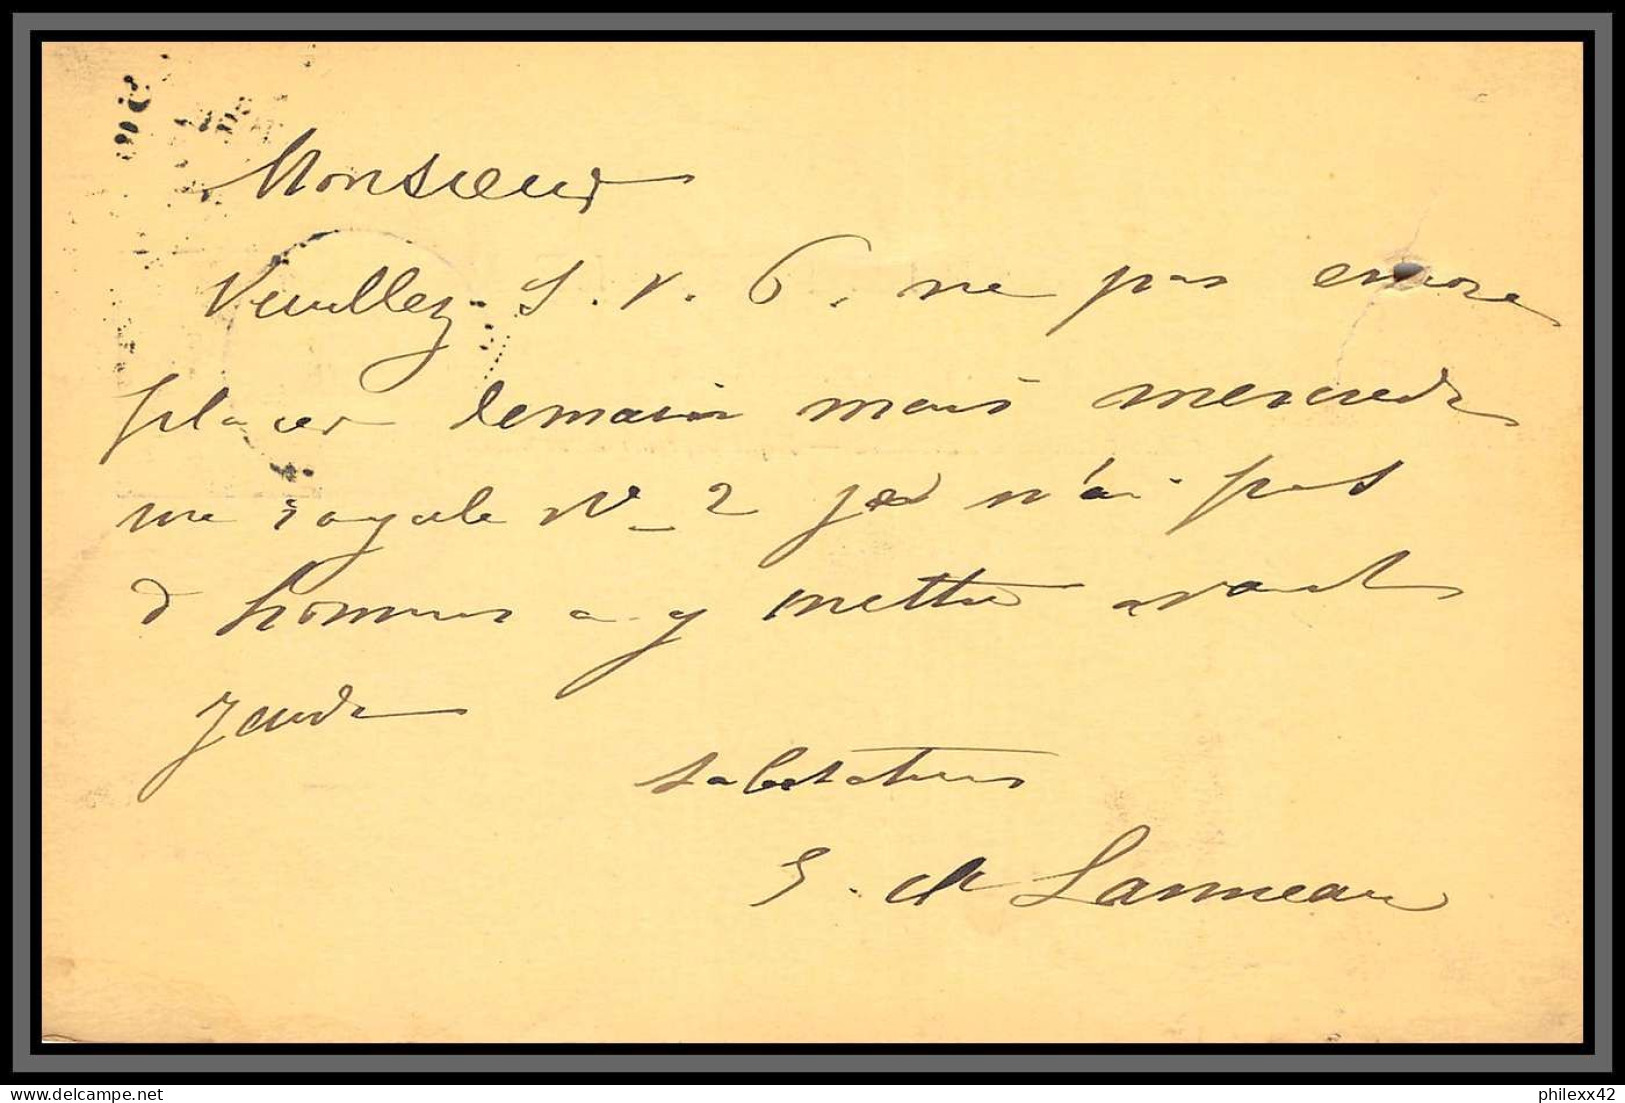 Monsieur
Veuillez S. V. P. ne pas encore
placer demain mais mercredi
une royale N 2 je n'ai pas
d hommes a y mettre avant
jeudi
salutations
E. de Lanneau
philexx42